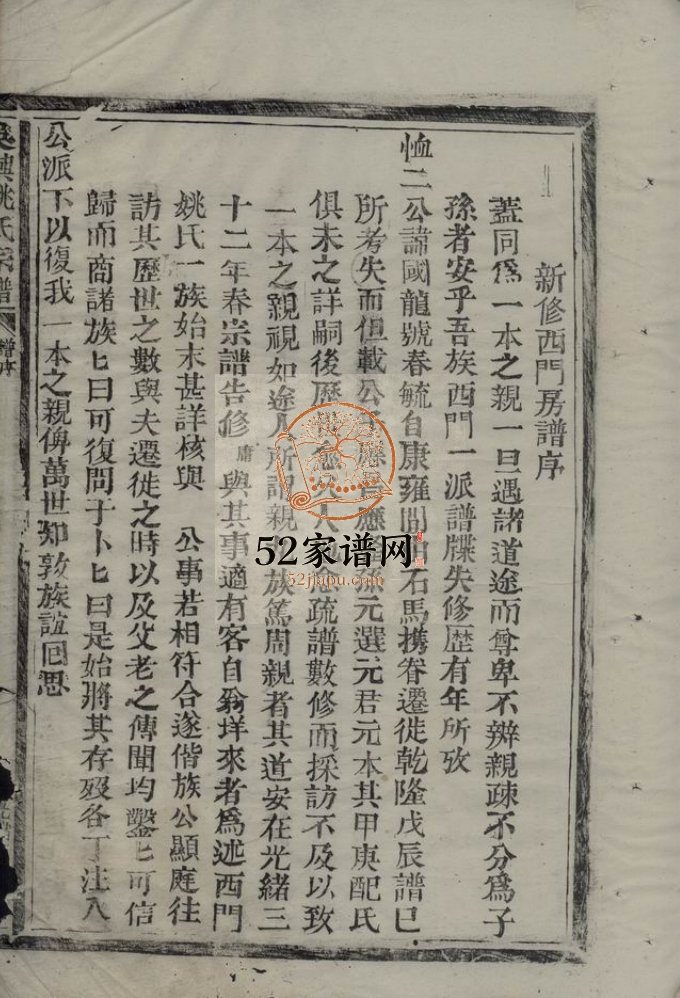 新修西門房譜序
蓋同爲一本之親一旦遇諸道途而尊卑不辦親疎不分爲子
孫者安乎吾族西門一派譜牒失修歷有年所攷
恤二公諱國龍號春毓自康雍間由石馬携眷遷徙乾隆戊辰譜已
所考失而但載公子應 應 孫元選元君元本其甲庚配氏
俱未之詳嗣後歷 愈久人 愈疏譜數修而採訪不及以致
一本之親視如途人所謂親 族篤周親者其道安在光緒三
十二年春宗譜告修庸與其事適有客自翁垟來者爲述西門
姚氏一族始末甚詳核與 公事若相符合遂偕族公顯庭往
訪其歷世之數與夫遷徙之時以及父老之傳聞均鑿匕可信
歸而商諸族匕曰可復問于卜匕曰是始將其存歿各丁注入
公派下以復我一本之親俾萬世知敦族誼囘思
吳興姚氏宗譜
譜序
52家谱网
52jiapu.com